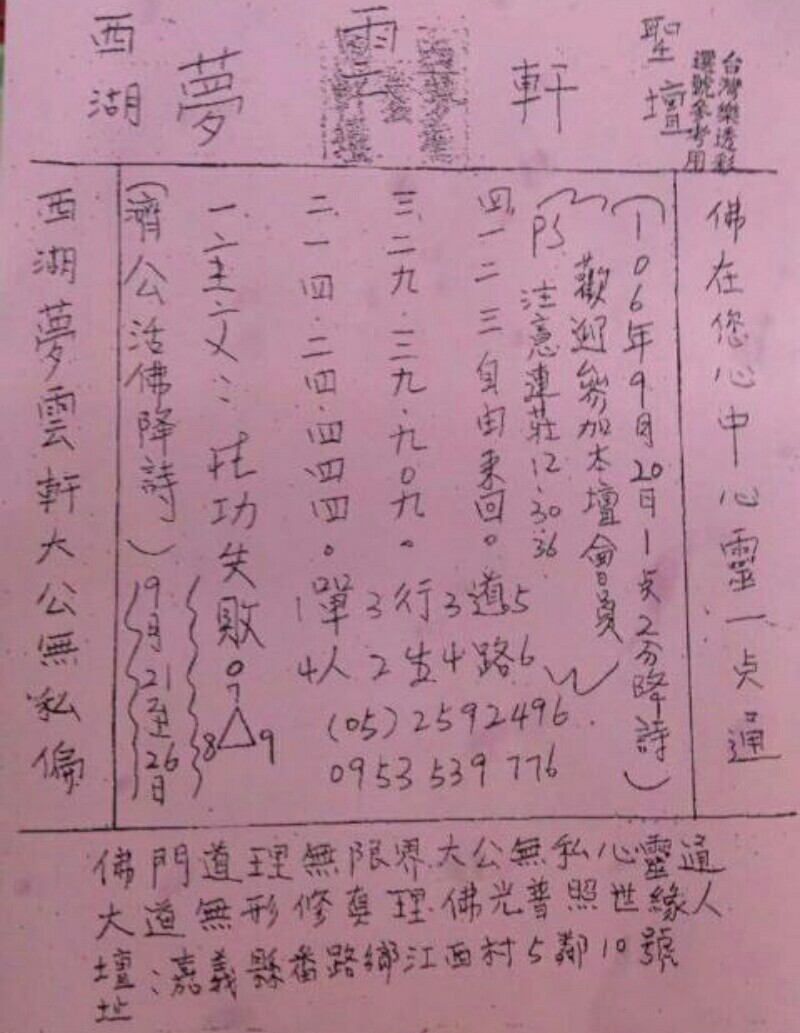 西湖 夢 雲 軒 聖壇
台灣樂透彩
選號參考用
西湖夢雲軒大公無私偏
(濟公活佛降詩)
9月21至26日
一、主文：功失敗。
7
8△9
二.一四.二四.四四四。
三.二九.三九.九0九。
四.一二三自由來回。
PS 注意連莊12、30、36
歡迎參加本壇會員
(106年9月20日1点2分降詩)
1單3行3道5
4人2生4路6
(05)2592496
0953 539 776
佛在您心中心靈一点通
佛門道理無限界大公無私心靈通
大道無形修真理佛光普照世緣人
壇址:嘉義縣番路鄉江西村5鄰10號